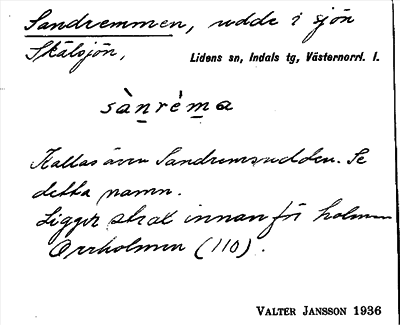 Sandremmen, udde i sjön
Skälsjön, Lidens sn, Indals tg, Västernorrl. l.
sànrèma
Kallas även Sandremsudden. Se
detta namn.
Ligger strax innanför holmen
Orrholmen (110).
VALTER JANSSON 1936